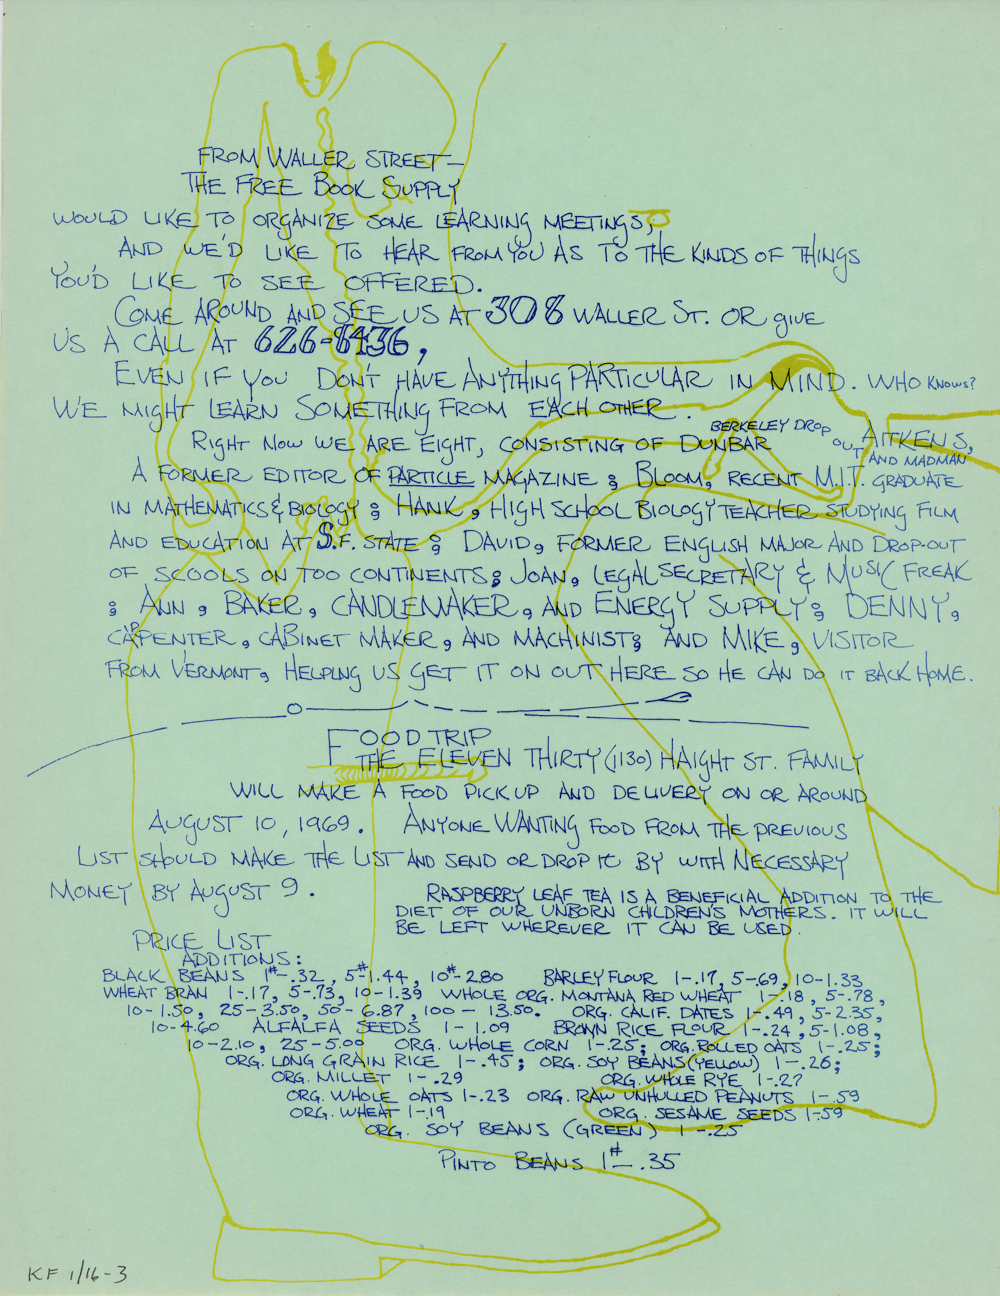 FROM WALLER STREET—
THE FREE BOOK SUPPLY
WOULD LIKE TO ORGANIZE SOME LEARNING MEETINGS,
AND WE'D LIKE TO HEAR FROM YOU AS TO THE KINDS OF THINGS
YOU'D LIKE TO SEE OFFERED.
COME AROUND AND SEE US AT 308 WALLER ST. OR give
US A CALL AT 626-8436,
EVEN IF YOU DON'T HAVE ANYTHING PARTICULAR IN MIND. WHO KNOWS?
WE MIGHT LEARN SOMETHING FROM EACH OTHER.
RIGHT NOW WE ARE EIGHT, CONSISTING OF DUNBAR BERKELEY DROP OUT AITKENS, AND MADMAN
A FORMER EDITOR OF PARTICLE MAGAZINE; BLOOM, RECENT M.I.T. GRADUATE
IN MATHEMATICS & BIOLOGY; HANK, HIGH SCHOOL BIOLOGY TEACHER STUDYING FILM
AND EDUCATION AT S.F. STATE; DAVID, FORMER ENGLISH MAJOR AND DROP-OUT
OF SCOOLS ON TOO CONTINENTS; JOAN, LEGAL SECRETARY & MUSIC FREAK
; ANN, BAKER, CANDLEMAKER, AND ENERGY SUPPLY; DENNY,
CARPENTER, CABINET MAKER, AND MACHINIST; AND MIKE, VISITOR
FROM VERMONT, HELPING US GET IT ON OUT HERE SO HE CAN DO IT BACK HOME.
FOOD TRIP
THE ELEVEN THIRTY (1130) HAIGHT ST. FAMILY
WILL MAKE A FOOD PICK UP AND DELIVERY ON OR AROUND
AUGUST 10, 1969. ANYONE WANTING FOOD FROM THE PREVIOUS
LIST SHOULD MAKE THE LIST AND SEND OR DROP IT BY WITH NECESSARY
MONEY BY AUGUST 9.
RASPBERRY LEAF TEA IS A BENEFICIAL ADDITION TO THE
DIET OF OUR UNBORN CHILDREN'S MOTHERS. IT WILL
BE LEFT WHEREVER IT CAN BE USED.
PRICE LIST
ADDITIONS:
BLACK BEANS 1#-.32, 5#1.44, 10#-2.80 BARLEY FLOUR 1-.17, 5-.69, 10-1.33
WHEAT BRAN 1-.17, 5-.73, 10-1.39 WHOLE ORG. MONTANA RED WHEAT 1-.18, 5-.78,
10-1.50, 25-3.50, 50-6.87, 100-13.50. ORG. CALIF. DATES 1-.49, 5-2.35,
10-4.60 ALFALFA SEEDS 1-1.09 BROWN RICE FLOUR 1-.24, 5-1.08,
10-2.10, 25-5.00 ORG. WHOLE CORN 1-.25; ORG. ROLLED OATS 1-.25;
ORG. LONG GRAIN RICE 1-.45; ORG. SOY BEANS (YELLOW) 1-.26;
ORG. MILLET 1-.29 ORG. WHOLE RYE 1-.27
ORG. WHOLE OATS 1-.23 ORG. RAW UNHULLED PEANUTS 1-.59
ORG. WHEAT 1-.19 ORG. SESAME SEEDS 1-.59
ORG. SOY BEANS (GREEN) 1-.25
PINTO BEANS 1#-.35
KF 1/16-3